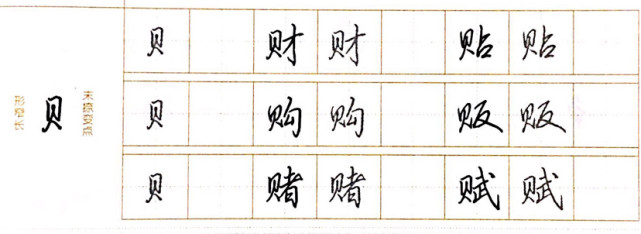 贝
贝 财 财 贴 贴
贝 购 购 贩 贩
贝 赌 赌 赋 赋